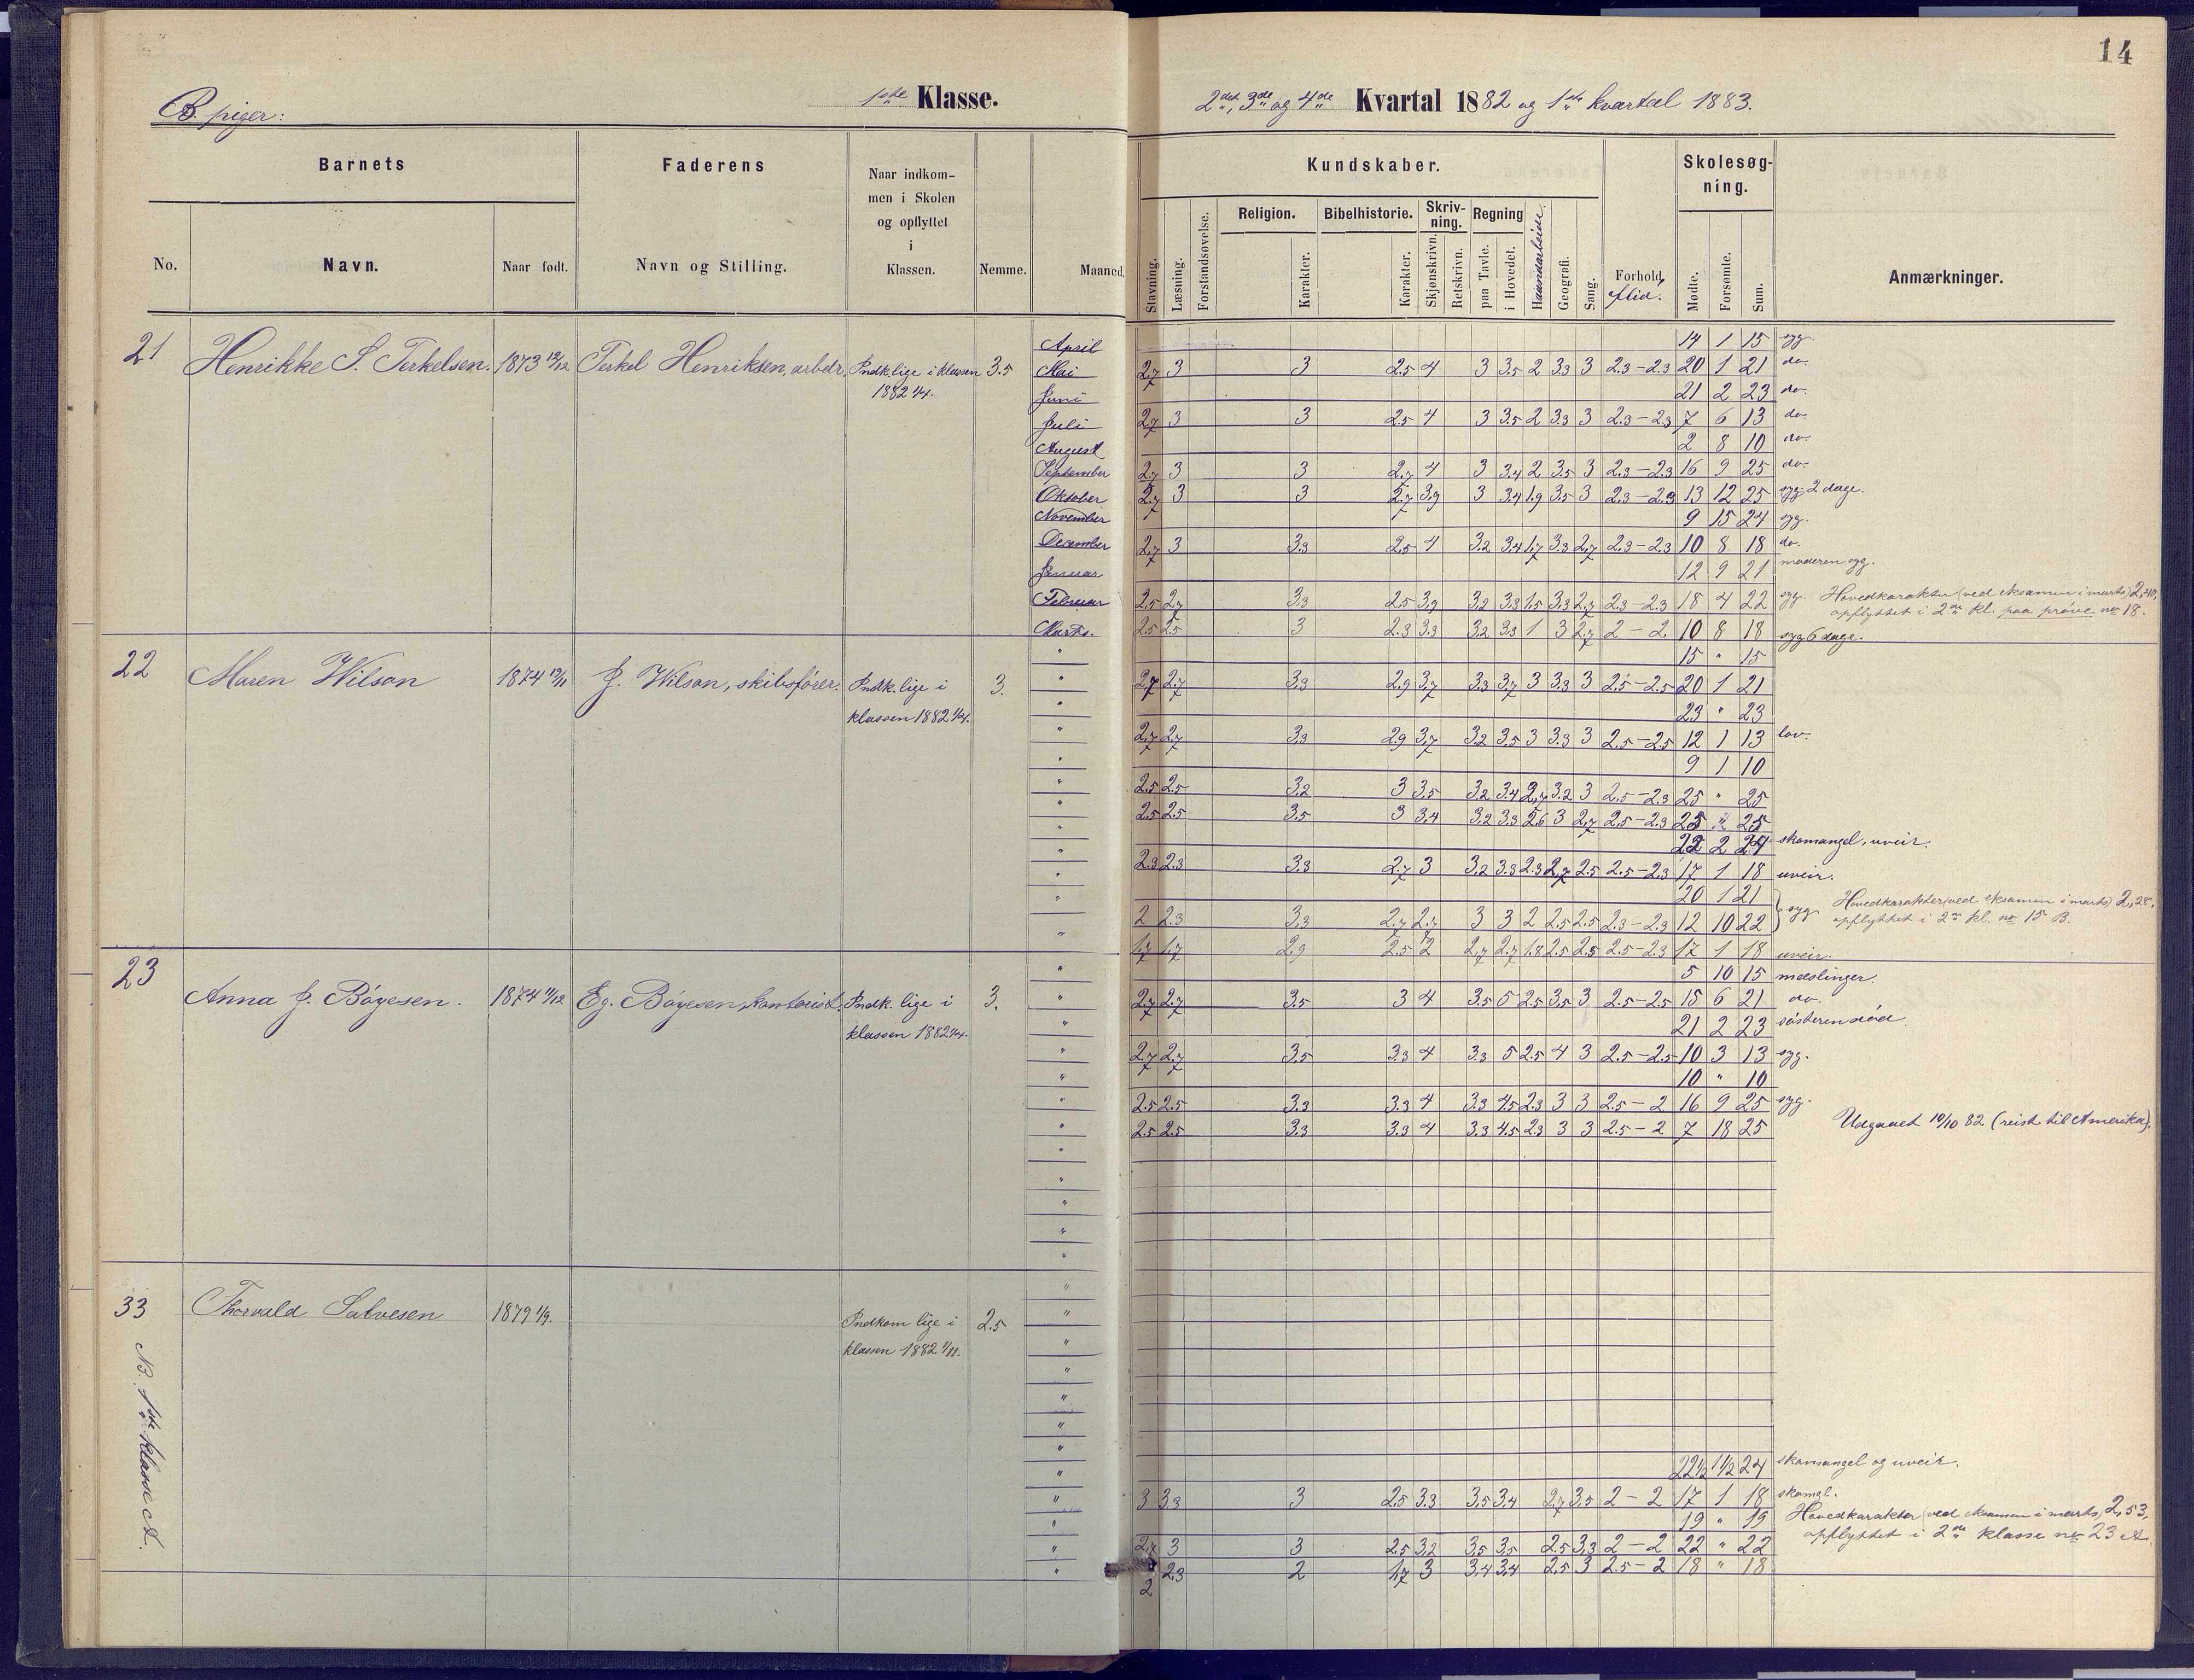 14
B. piger:
1ste Klasse.
2det, 3de og 4de Kvartal 1882 og 1ste kvartal 1883.
Barnets
Faderens
Naar indkom-
men i Skolen
og opflyttet
i
Klassen.
No.
Navn.
Naar født.
Navn og Stilling.
Nemme.
Maaned.
Kundskaber.
Skolesøg-
ning.
Stavning.
Læsning.
Forstandsøvelse.
Religion.
Karakter.
Bibelhistorie.
Karakter.
Skriv-
ning.
Skjønskrivn.
Retskrivn.
Regning
paa Tavle.
i Hovedet.
Haandarbeider.
Geografi.
Sang.
Forhold,
flid.
Mødte.
Forsømte.
Sum.
Anmærkninger.
21 Henrikke S. Terkelsen. 1873 12/12 Terkel Henriksen, arbeidr. Indk. lige i klassen 3.5
1882 1/4.
April 14 1 15 syg.
Mai 2.7 3 3 2.5 4 3 3.5 2 3.3 3 2.3-2.3 20 1 21 do.
Juni 21 2 23 do.
Juli 2.7 3 3 2.5 4 3 3.5 2 3.3 3 2.3-2.3 7 6 13 do.
August 2 8 10 do.
September 2.7 3 3 2.7 4 3 3.4 2 3.5 3 2.3-2.3 16 9 25 do.
Oktober 2.7 3 3 2.7 3.9 3 3.4 1.9 3.5 3 2.3-2.3 13 12 25 syg 2 dage.
November 9 15 24 syg.
December 2.7 3 3.3 2.5 4 3.2 3.4 1.7 3.3 2.7 2.3-2.3 10 8 18 do.
Januar 12 9 21 moderen syg.
Februar 2.5 2.7 3.3 2.5 3.9 3.2 3.3 1.5 3.3 2.7 2.3-2.3 18 4 22 syg. Hovedkarakter (ved eksamen i marts) 2,40,
opflyttet i 2den kl. paa prøve no 18.
Marts. 2.5 2.5 3 2.3 3.3 3.2 3.3 1 3 2.7 2-2 10 8 18 syg 6 dage.
22 Maren Wilson 1874 19/11 J. Wilson, skibsfører. Indk. lige i 3.
klassen 1882 1/4.
" 15 " 15
" 2.7 2.7 3.3 2.9 3.7 3.3 3.7 3 3.3 3 2.5-2.5 20 1 21
" 23 " 23
" 2.7 2.7 3.3 2.9 3.7 3.2 3.5 3 3.3 3 2.5-2.5 12 1 13 lov.
" 9 1 10
" 2.5 2.5 3.2 3 3.5 3.2 3.4 2.7 3.2 3 2.5-2.3 25 " 25
" 2.5 2.5 3.5 3 3.4 3.2 3.3 2.6 3 2.7 2.5-2.3 25 " 25
" 22 2 24 skomangel, uveir.
" 2.3 2.3 3.3 2.7 3 3.2 3.3 2.3 2.7 2.5 2.5-2.3 17 1 18 uveir.
" 20 1 21
" 2 2.3 3.3 2.7 2.7 3 3 2 2.5 2.5 2.3-2.3 12 10 22 syg Hovedkarakter (ved eksamen i marts) 2,28,
opflyttet i 2den kl. no 15 B.
" 1.7 1.7 2.9 2.5 2 2.7 2.7 1.8 2.5 2.5 2.5-2.3 17 1 18 uveir.
23 Anna J. Bøyesen. 1874 11/12 Eg. Bøyesen, kontorist. Indk. lige i 3.
klassen 1882 1/4.
" 5 10 15 mæslinger.
" 2.7 2.7 3.5 3 4 3.5 5 2.5 3.5 3 2.5-2.5 15 6 21 do.
" 21 2 23 søsteren død.
" 2.7 2.7 3.5 3.3 4 3.3 5 2.5 4 3 2.5-2.5 10 3 13 syg.
" 10 " 10
" 2.5 2.5 3.3 3.3 4 3.3 4.5 2.3 3 3 2.5-2 16 9 25 syg.
" 2.5 2.5 3.3 3.3 4 3.3 4.5 2.3 3 3 2.5-2 7 18 25 Udgaaet 10/10 82 (reist til Amerika).
33 Thorvald Salvesen 1879 1/9. Indkom lige i 2.5
klassen 1882 1/11.
NB. 1ste klasse A.
22½ 1½ 24 skomangel og uveir.
" 3 3.3 3 2.5 3.3 3.5 3.4 2.7 3.5 2-2 17 1 18 skomgl.
" 19 " 19 Hovedkarakter (ved eksamen i marts) 2,53,
opflyttet i 2den klasse no 23 A.
" 2.7 3 3 2.5 3.2 3.5 3.5 2.5 3.3 2-2 22 " 22
" 2 2.3 2 1.7 3 3.4 3.4 2.5 3 2.5-2 18 " 18